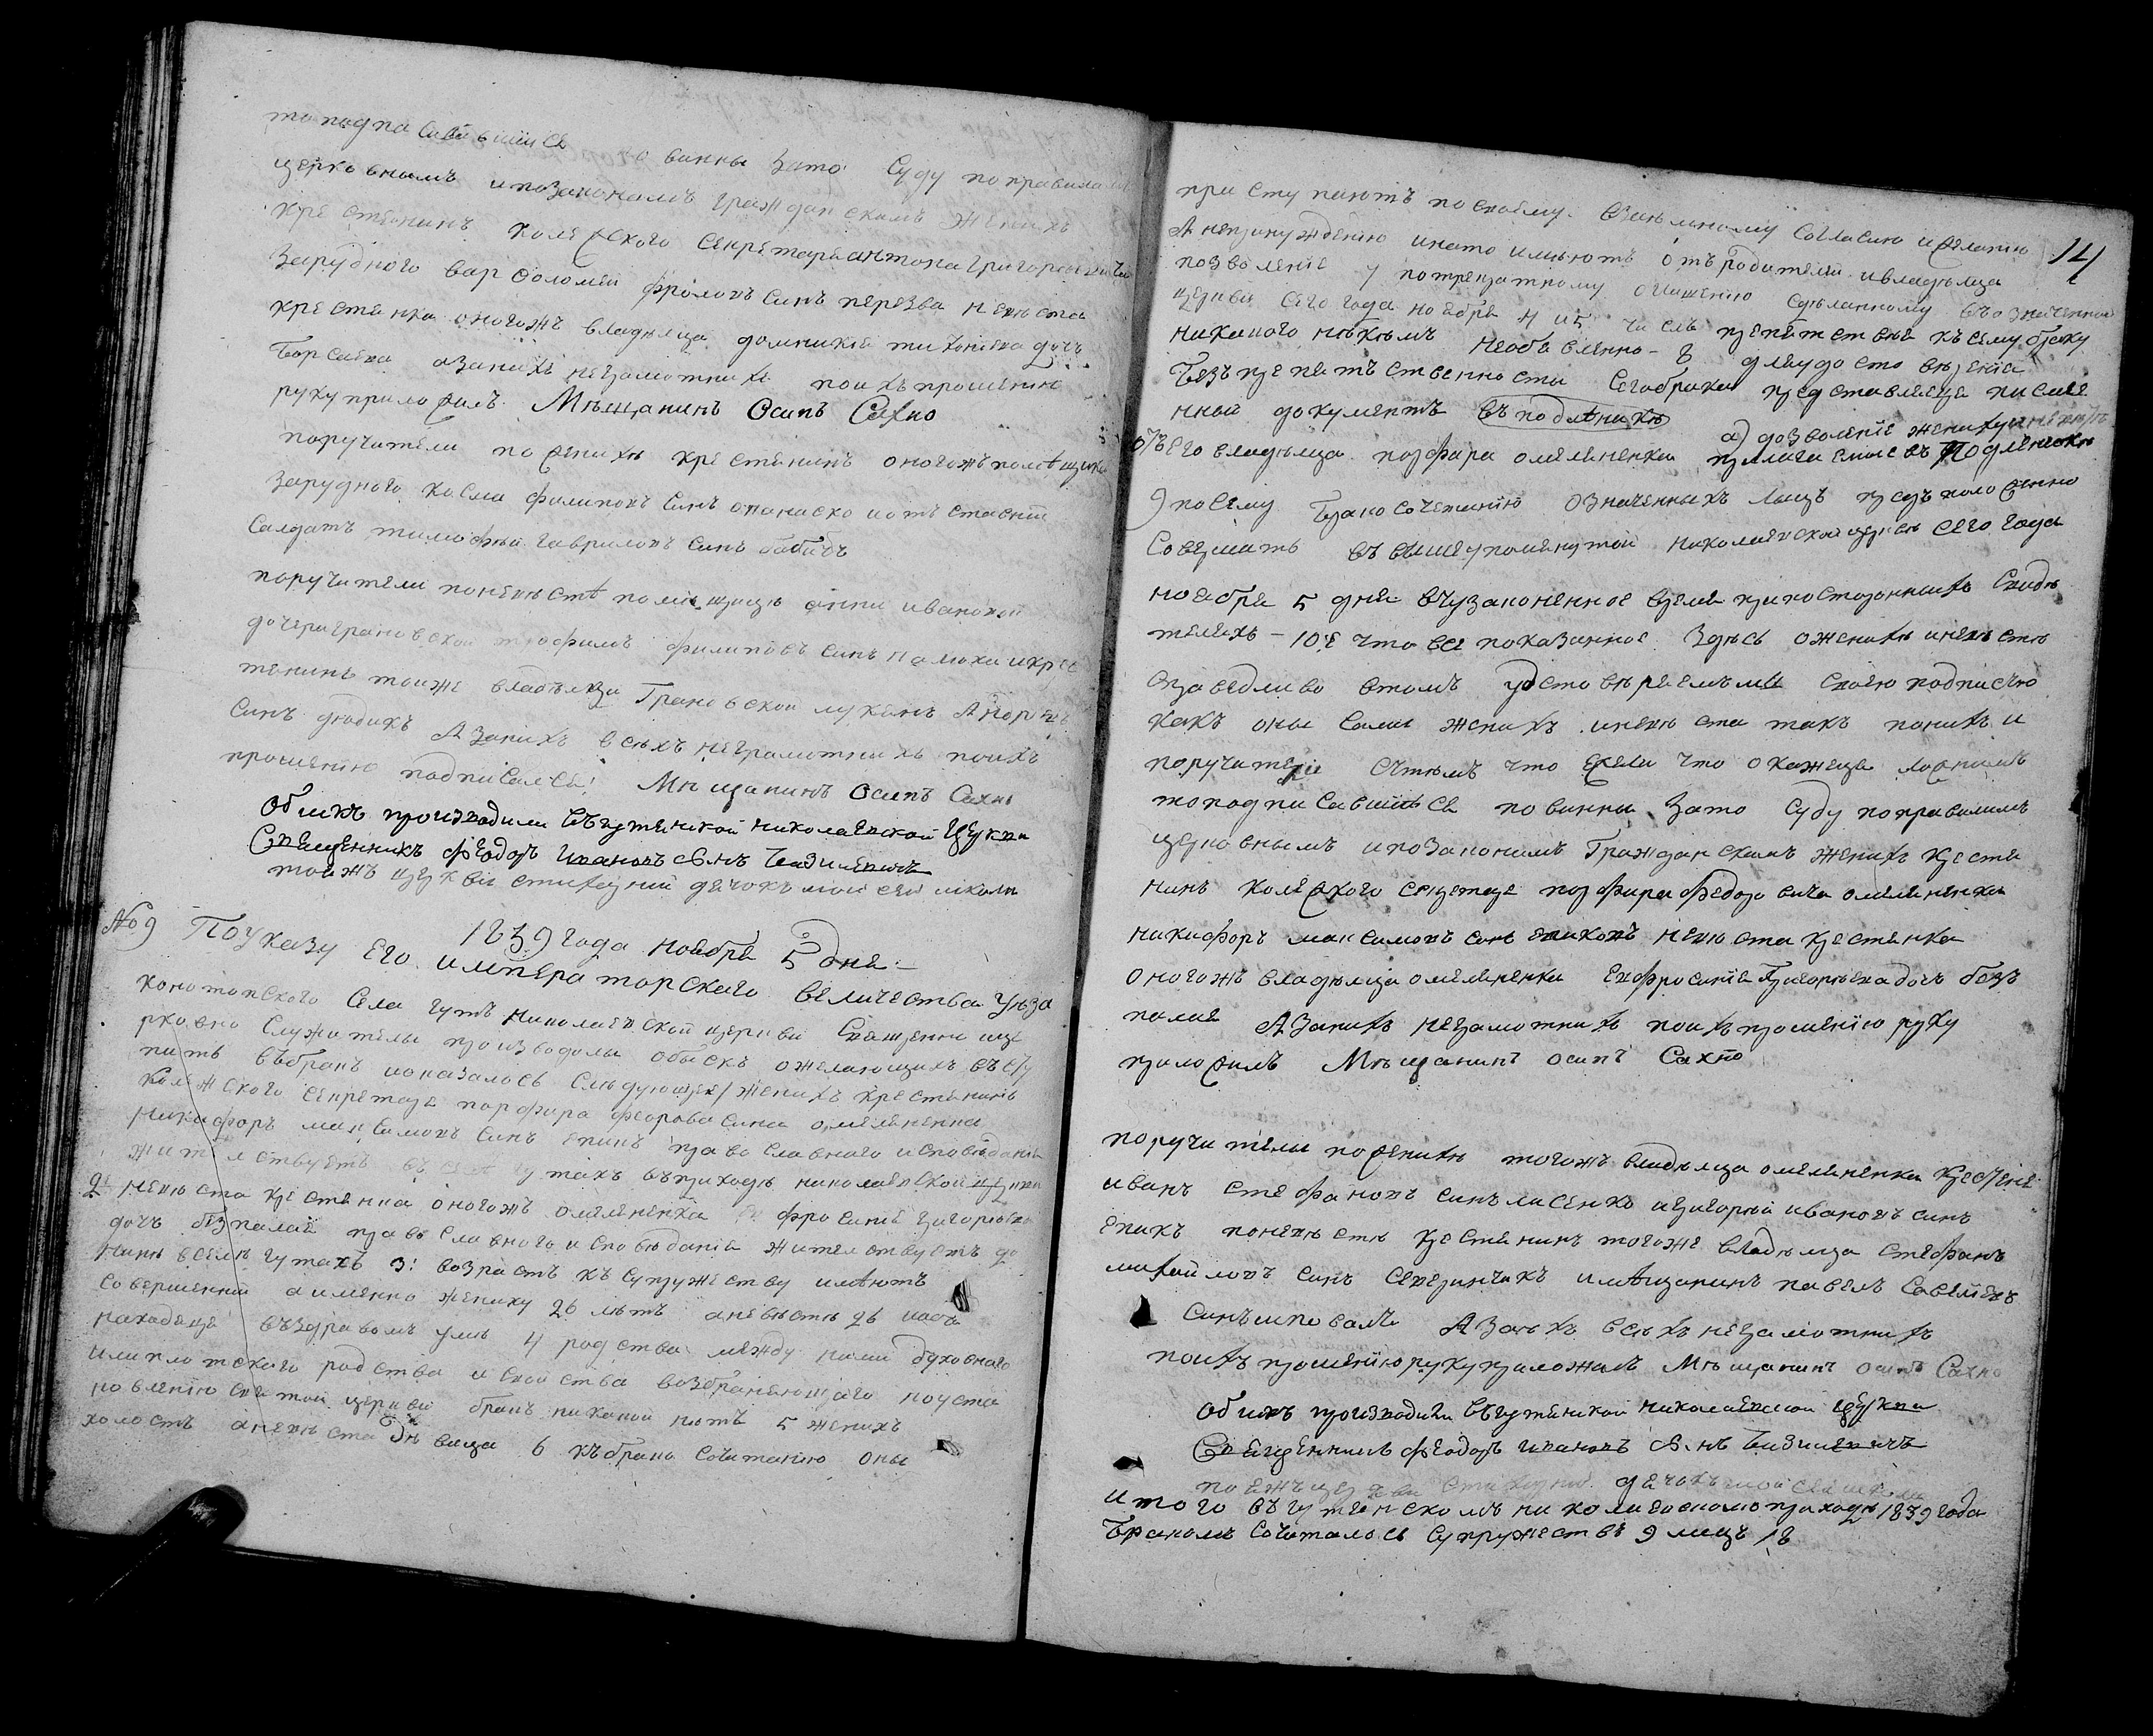 то подписавшийся повинны зато Суду поправилам
церковнымъ ипозаконамъ Гражданскимъ женихъ
крестянинъ колежского Секретаря антона григориевича
Зарудного варфоломей фроловъ синъ перезва невѣста
крестянка оногожъ владѣлца домникія тихонѣва дочъ
Борсаева азанихъ неграмотнихъ поихъ прошенію
руку приложилъ Мѣщанинъ Осипъ Сахно
поручители по женихѣ крестянинъ оногожъ помѣщика
Зарудного косма филиповъ Синъ опанаско иотъставній
Салдатъ тимофѣй гавриловъ Синъ бабичъ
поручители поневѣстѣ помѣщицѣ анни ивановой
дочериграновской трофимъ филиповъ Синъ иакрес
тянинъ тоиже владѣлци Грановской лукянъ Андреевъ
Синъ дюдикъ Азанихъ всѣхъ неграмотнихъ поихъ
прошенію подписался: Мѣщанинъ Осипъ Сахно
Обискъ производили въгутянской николаевской церкви
Священникъ Феодоръ Ивановъ Синъ Базилевичъ
тояжъ церкви стихарний дячокъ моисей школи
№ 9 1839 года ноября 5 дня
По указу Его императорскаго величества уѣзда
конотопского Села гутъ николаевской церкви Священни ице
рковно Служители производили обискъ ожелающихъ въсту
пить въбракъ иоказалось Слѣдующее женихъ крестянинъ
Колежского секретаря порфира феорова сина омеляненка
Никифоръ максимовъ Синъ епикъ православного исповѣданія
жителствуетъ въ селѣ гутахъ въприходѣ николаевской церкви
2 невѣста крестянка оногожъ омеляненка евфросинія григорѣва
дочъ безпалая православного исповѣданія жителствуетъ до
нинѣ вселѣ гутахъ 3: возрастъ къ Супружеству имѣютъ
Совершенній аименно жениху 26 лѣтъ аневѣстѣ 26 иоба
находятся въздравомъ умѣ 4 родства между ними духовного
илиплотского родства и своиства возбраняющаго поуста
новленію святой церкви бракъ никакой нѣтъ 5 женихъ
холостъ аневѣста дѣвица 6 къбрако Сочитанію они
14
приступаютъ посвоему взаимному Согласію ижеланію
Анепринужденію инато имѣютъ отъродителей ивладѣлца
позволеніе 7 потрекратному оглашенію сдѣланному въозначенной
церкви Сего года ноября 4 и 5 числъ препятствія къ сему браку
никакого нѣкѣмъ необявленно - 8 дляудостовѣренія
Безъпрепятъственности Сегобрака представляеца писме
нній документъ въ подлѣнникѣ а) дозволеніе жениху иневѣстѣ
отъ его владѣлца порфира омеляненка прилагаемое въ Подленикѣ
9 посему Бракосочетанію означеннихъ лицъ предположенно
Совершить въ вишеупомянутой николаевской церквѣ Сего года
ноября 5 дня вчузаконенное время припостороннихъ Свидѣ
теляхъ - 10е что все показанное Здѣсь оженихѣ иневѣстѣ
Справедливо втомъ удостовѣряемъми Своею подписью
какъ они Сами женихъ иневѣста такъ понихъ и
поручители Стѣмъ что Ежели что окажеца ложнимъ
топодписавшіеся повинни зато Суду поправиламъ
церковнымъ ипозаконамъ Гражданскимъ женихъ крестя
нинъ колежского секретаря порфира Федоровича омеляненка
никифоръ максимовъ синъ епиковъ невѣста крестянка
оногожъ владѣлца омеляненка Евфросинія Григорѣвнадочъ без
палая Азанихъ неграмотнихъ поихъ прошенію руку
приложилъ Мѣщанинъ осипъ Сахно
поручители поженихѣ тогожъ владѣлца омеляненка крестяне
иванъ стефановъ синъ лисенко игригорій ивановъ синъ
епикъ поневѣстѣ крестянинъ тогоже владѣлца стефанъ
михайловъ синъ имѣщанинъ павелъ Савелиевъ
Синъ Азанихъ всѣхъ неграмотнихъ
поихъ прошеніюруку приложилъ Мѣщанинъ осипъ Сахно
Обискъ производили въгутянской николаевской церкви
Священникъ Феодоръ Ивановъ Синъ Базилевичъ
тояжъ церкви стихарний дячокъ моисей школи
итого въгутянскомъ николаевскомъ приходѣ 1839 года
Бракомъ Сочиталось Супружествъ 9 лицъ 18